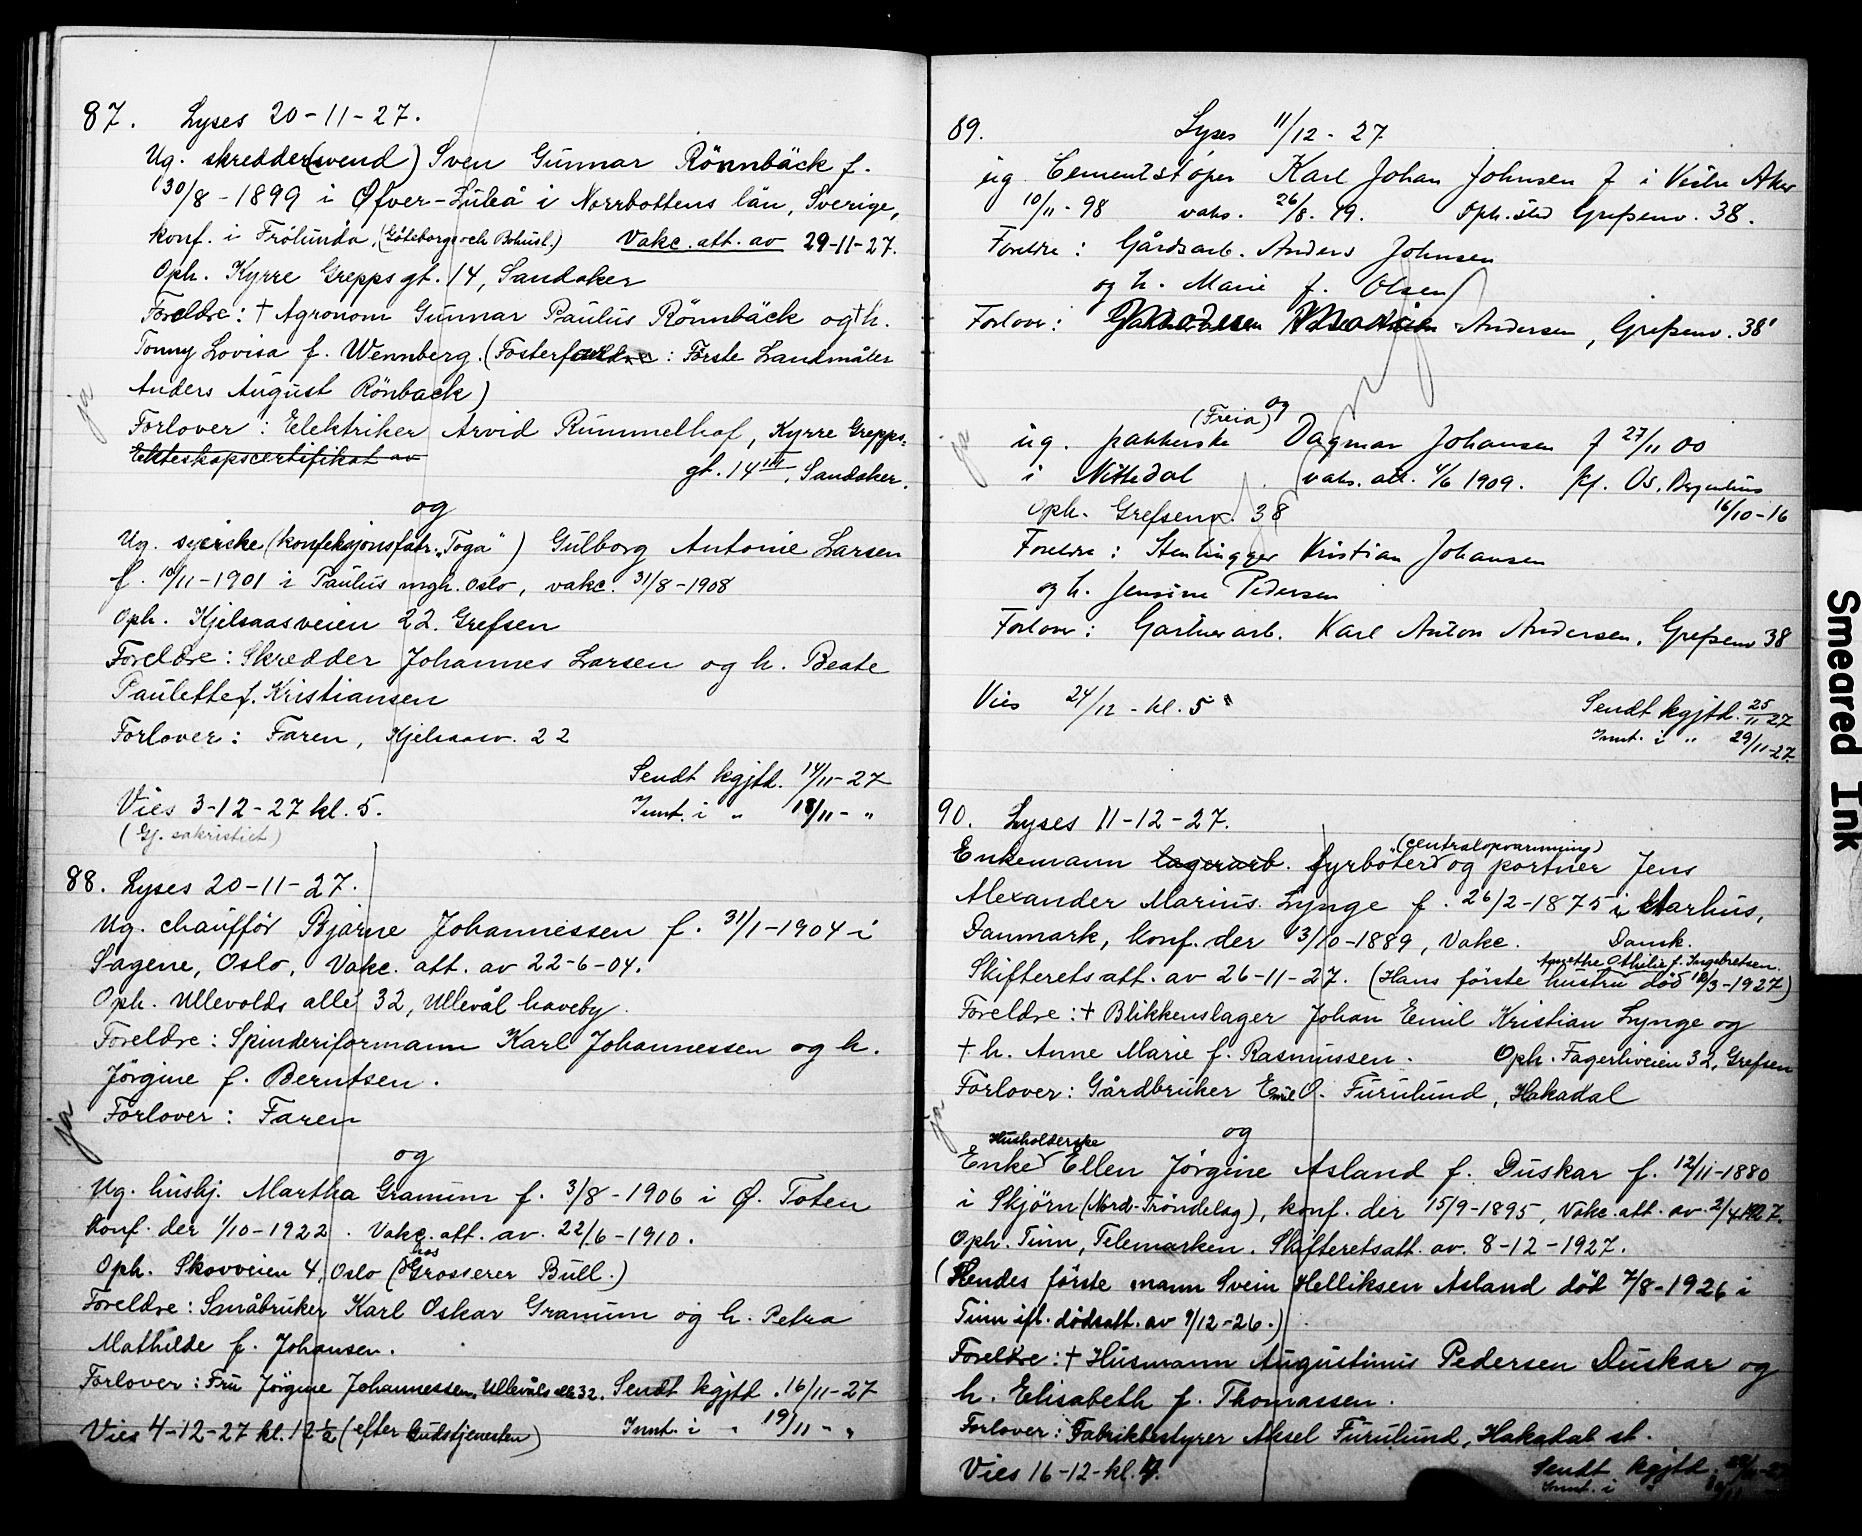 87. Lyses 20-11-27.
Ug. skredder(svend) Sven Gunnar Rönnbäck f.
30/8 - 1899 i Øfver-Luleå i Norrbottens län, Sverige,
konf. i Frölunda, (Göteborgs och Bohusl.) Vakc. att. av 29-11-27.
Oph. Kyrre Greppsgt. 14, Sandaker
Foreldre: + Agronom Gunnar Paulus Rönnbäck og + h.
Tonny Lovisa f. Wennberg. (Fosterfar: Förste Landmåler
Anders August Rönback)
ja
Forlover: Elektriker Arvid Rummelhof, Kyrre Grepps-
Ekteskapscertifikat av gt. 14, Sandaker.
og
Ug. syerske (konfeksjonsfabr. "Toga") Gulborg Antonie Larsen
f. 10/11-1901 i Paulus mgh. Oslo, vakc. 31/8-1908
Oph. Kjelsaasveien 22. Grefsen
Foreldre: Skredder Johannes Larsen og h. Beate
Paulette f. Kristiansen
Forlover: Faren, Kjelsaasv. 22
Sendt kgjtd. 14/11-27
Vies 3-12-27 kl. 5. Innt. i " 18/11- "
(Gj. sakristiet)
88. Lyses 20-11-27.
Ug. chauffør Bjarne Johannessen f. 31/1-1904 i
Sagene, Oslo, Vakc. att. av 22-6-04.
Oph. Ullevolds allé 32, Ullevål haveby.
Foreldre: Spinderiformann Karl Johannessen og h.
Jørgine f. Berntsen.
ja
Forlover: Faren
og
Ug. hushj. Martha Granum f. 3/8-1906 i Ø. Toten
Konf. der 1/10-1922. Vakc. att. av. 22/6-1910.
Oph. Skovveien 4, Oslo (hos Grosserer Bull.)
Foreldre: Småbruker Karl Oskar Granum og h. Petra
Mathilde f. Johansen.
Forlover: Fru Jørgine Johannessen, Ullevåls alle 32. Sendt kgjtd. 16/11-27
Vies 4-12-27 kl. 12½ (efter Gudstjenesten) Innt. i " 19/11- "
89. Lyses 11/12-27
ug. Cementstøper Karl Johan Johnsen f i Vestre Aker
10/11-98 vaks. 26/8.19. Oph.sted Grefsenv. 38.
Foreldre: Gårdsarb. Anders Johnsen
og h. Marie f. Olsen
Forlover: Andersen, Grefsenv. 38
og
ja
ug. pakkerske (Freia) Dagmar Johansen f 27/11 00
i Nittedal vaks. att. 4/6 1909. kf. Os. Bspenhus
16/10-16
Oph. Grefsenv. 38
Foreldre: Stenhugger Kristian Johansen
og h. Jensine Pedersen
Forlover: Gartnerarb. Karl Anton Andersen, Grefsenv 38
Vies 24/12 - kl. 5 Sendt kgjtd. 25/11 27
Innt. i " 29/11-27.
90. Lyses 11-12-27.
(centralopvarmning)
Enkemann lagerarb. fyrbøter og portner Jens
Alexander Marius Lynge f. 26/2-1875 i Aarhus,
Danmark, konf. der 13/10-1889, Vakc. Dansk.
Agnethe Othilie f. Ingebretsen.
Skifteretsatt. av 26-11-27. (Hans første hustru død 18/3-1927)
Foreldre: + Blikkenslager Johan Emil Kristian Lynge og
+ h. Anne Marie f. Rasmussen. Oph. Fagerliveien 32, Grefsen
Forlover: Gårdbruker Emil O. Furulund, Hakadal
ja
og
Husholderske
Enke Ellen Jørgine Åsland f. Duskar f. 12/11-1880
i Skjørn (Nord-Trøndelag), konf. der 15/9-1895, Vakc. att. av. 2/4 1927.
Oph. Tinn, Telemarken. Skifteretsatt. av. 8-12-1927.
(Hendes første mann Svein Helliksen Åsland død 7/8-1926 i
Tinn ifl. dødsatt. av 9/12-26.)
Foreldre: + Husmann Augustinus Pedersen Duskar og
h. Elisabeth f. Thomassen.
Forlover: Fabrikbestyrer Aksel Furulund, Hakadal st.
Vies 16-12- kl. 4. Sendt kgjtd.
Innt. i
Smeared Ink